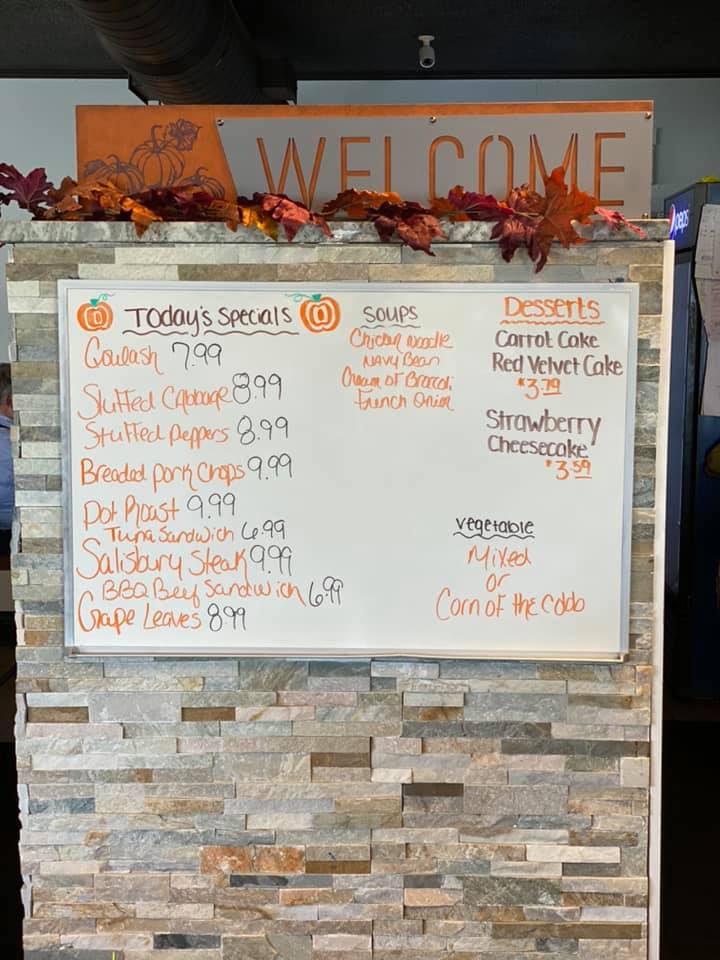 WELCOME
pepsi
Today's Specials
Goulash 7.99
Stuffed Cabbage 8.99
Stuffed Peppers 8.99
Breaded Pork Chops 9.99
Pot Roast 9.99
Tuna Sandwich 6.99
Salisbury Steak 9.99
BBQ Beef Sandwich 6.99
Grape Leaves 8.99
SOUPS
Chicken Noodle
NAVY Bean
Cream of Broccoli
French Onion
Desserts
Carrot Cake
Red Velvet Cake
$3.79
Strawberry
Cheesecake
$3.59
Vegetable
Mixed
or
Corn of the Cobb